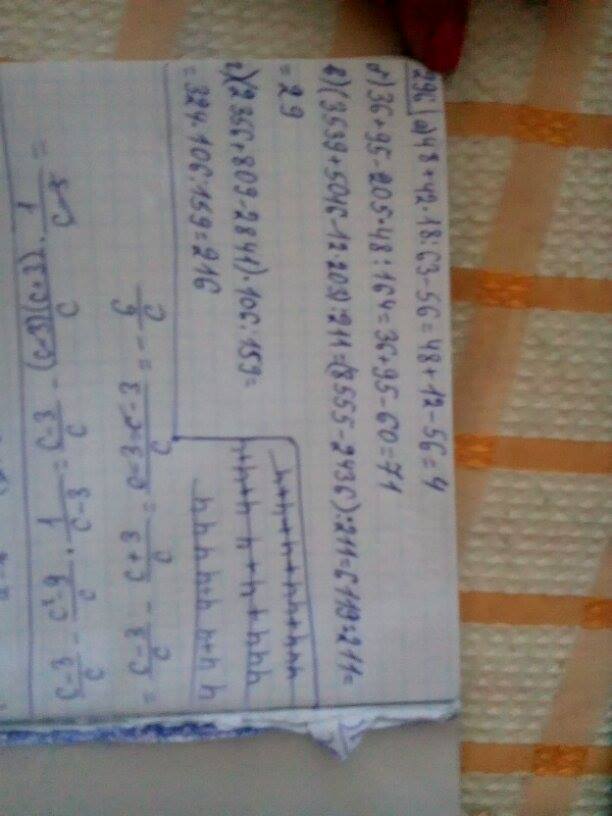 296. а) 48 + 42 · 18 : 63 - 56 = 48 + 12 - 56 = 4
б) 36 + 95 - 205 · 48 : 164 = 36 + 95 - 60 = 71
в) (3539 + 5016 - 12 · 203) : 211 = (8555 - 2436) : 211 = 6119 : 211 =
= 29
г) (2356 + 809 - 2841) · 106 : 159 =
= 324 · 106 : 159 = 216
\frac{c-3}{c} - \frac{c²-9}{c} · \frac{1}{c-3} = \frac{c-3}{c} - \frac{(c-3)(c+3)}{c} · \frac{1}{c-3} =
= \frac{c-3}{c} - \frac{c+3}{c} = \frac{c-3-c-3}{c} = -\frac{6}{c}